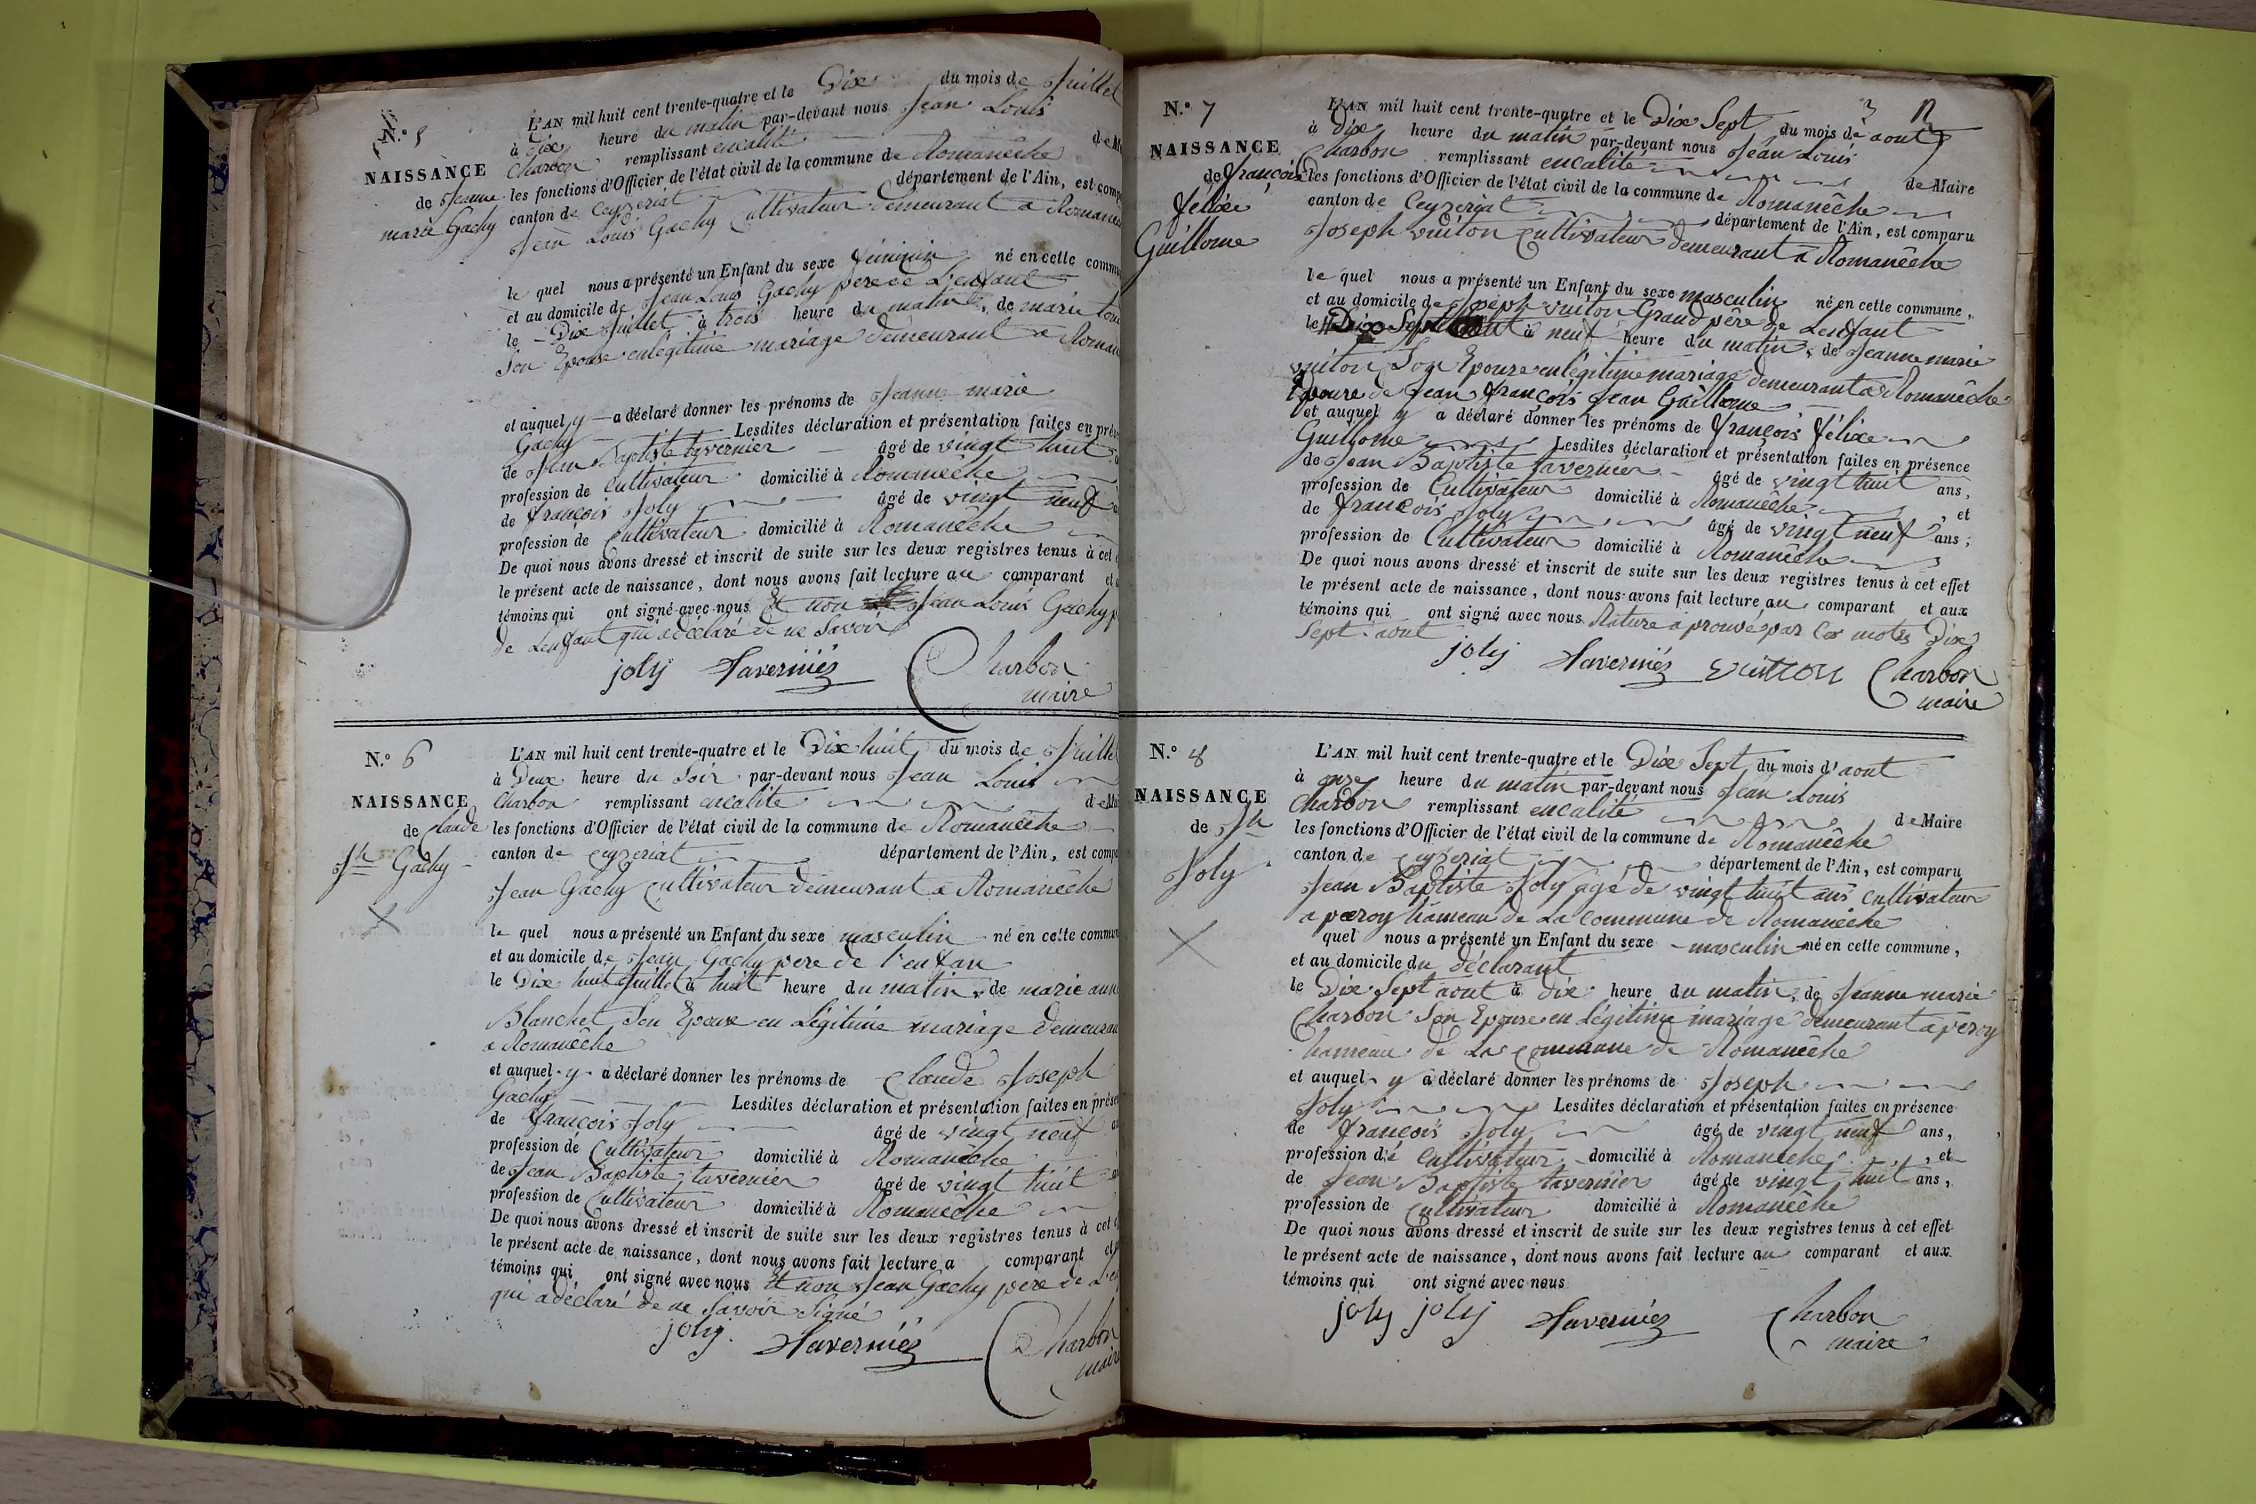 N.° 5
NAISSANCE
de Jeanne
marie Gachy
L'AN mil huit cent trente-quatre et le Dix du mois de Juillet
à Dix heure du matin par-devant nous Jean Louis
Charbon remplissant encalité de
les fonctions d'Officier de l'état civil de la commune de Romanêche
canton de Ceyzeriat département de l'Ain, est comp
Jean Louis Gachy Cultivateur Demeurant a
le quel nous a présenté un Enfant du sexe féminin né en cette commu
et au domicile de Jean Louis Gachy pere de L'enfant
le Dix Juillet à trois heure du matin, de marie
Son Epouse enlégitime mariage Demeurant a
et auquel y a déclaré donner les prénoms de Jeanne marie
Gachy Lesdites déclaration et présentation faites en prés
de Jean Baptiste tavernier âgé de vingt huit
profession de Cultivateur domicilié à Romanêche
de françois Joly âgé de vingt neuf
profession de Cultivateur domicilié à Romanêche
De quoi nous avons dressé et inscrit de suite sur les deux registres tenus à cet
le présent acte de naissance, dont nous avons fait lecture au comparant et
témoins qui ont signé avec nous Et non Jean Louis Gachy p
de Lenfant qui adéclaré de ne Savoir
joly Tavernier Charbon
maire
N.° 6
NAISSANCE
de Claude
Jh Gachy
L'AN mil huit cent trente-quatre et le Dix huit du mois de Juille
à Deux heure du Soir par-devant nous Jean Louis
Charbon remplissant encalité de Mai
les fonctions d'Officier de l'état civil de la commune de Romanêche
canton de ceyzeriat département de l'Ain, est compa
Jean Gachy Cultivateur Demeurant a Romanêche
le quel nous a présenté un Enfant du sexe masculin né en cette commun
et au domicile de Jean Gachy pere de l'enfan
le Dix huit Juillet à huit heure du matin, de marie ann
Blanchet Son Epouse en Légitime mariage Demeuran
a Romanêche
et auquel y a déclaré donner les prénoms de Claude Joseph
Gachy Lesdites déclaration et présentation faites en prése
de françois Joly âgé de vingt neuf
profession de Cultivateur domicilié à Romanêche
de Jean Baptiste tavernier âgé de vingt huit
profession de Cultivateur domicilié à Romanêche
De quoi nous avons dressé et inscrit de suite sur les deux registres tenus à cet
le présent acte de naissance, dont nous avons fait lecture a comparant et
témoins qui ont signé avec nous Et non Jean Gachy pere de L'en
qui adéclaré de ne Savoir Signé
joly Tavernier Charbon
maire
N.° 7
NAISSANCE
de françois
félixe
Guillome
L'AN mil huit cent trente-quatre et le Dix Sept du mois de aout
à Dix heure du matin par-devant nous Jean Louis
Charbon remplissant encalité de Maire
les fonctions d'Officier de l'état civil de la commune de Romanêche
canton de Ceyzeriat département de l'Ain, est comparu
Joseph vuiton Cultivateur Demeurant a Romanêche
le quel nous a présenté un Enfant du sexe masculin né en cette commune,
et au domicile de Joseph vuiton Grand père de Lenfant
le Dix Sept à neuf heure du matin, de Jeanne marie
vuiton Son Epouse enlégitime mariage demeurant a Romanêche
Epouse de Jean françois Jean Guillome
et auquel y a déclaré donner les prénoms de françois félixe
Guillome Lesdites déclaration et présentation faites en présence
de Jean Baptiste tavernier âgé de vingt huit ans,
profession de Cultivateur domicilié à Romanêche, et
de françois Joly âgé de vingt neuf ans,
profession de Cultivateur domicilié à Romanêche
De quoi nous avons dressé et inscrit de suite sur les deux registres tenus à cet effet
le présent acte de naissance, dont nous avons fait lecture au comparant et aux
témoins qui ont signé avec nous Rature aprouvé par les mots Dix
Sept aout
joly Tavernier vuiton Charbon
maire
N.° 8
NAISSANCE
de Jh
Joly
L'AN mil huit cent trente-quatre et le Dix Sept du mois d'aout
à onze heure du matin par-devant nous Jean Louis
Charbon remplissant encalité de Maire
les fonctions d'Officier de l'état civil de la commune de Romanêche
canton de ceyzeriat département de l'Ain, est comparu
Jean Baptiste Joly agé de vingt huit ans Cultivateur
a peroy hameau de La Commune de Romanêche
quel nous a présenté un Enfant du sexe masculin né en cette commune,
et au domicile du déclarant
le Dix Sept aout à dix heure du matin, de Jeanne marie
Charbon Son Epouse en Légitime mariage demeurant a peroy
hameau de La Commune de Romanêche
et auquel y a déclaré donner les prénoms de Joseph
Joly Lesdites déclaration et présentation faites en présence
de françois Joly âgé de vingt neuf ans,
profession de Cultivateur domicilié à Romanêche, et
de Jean Baptiste tavernier âgé de vingt huit ans,
profession de Cultivateur domicilié à Romanêche
De quoi nous avons dressé et inscrit de suite sur les deux registres tenus à cet effet
le présent acte de naissance, dont nous avons fait lecture au comparant et aux
témoins qui ont signé avec nous
joly joly Tavernier Charbon
maire